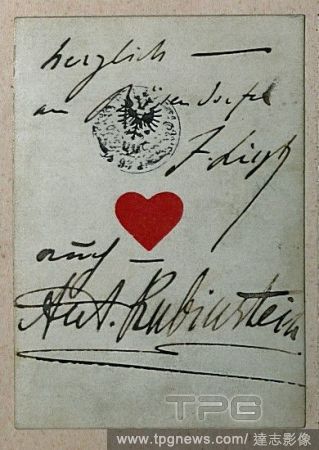 herzlich —
an Bösendorfer
F. Liszt
auch —
Ant. Rubinstein
TPG
www.tpgnews.com/ 達志影像